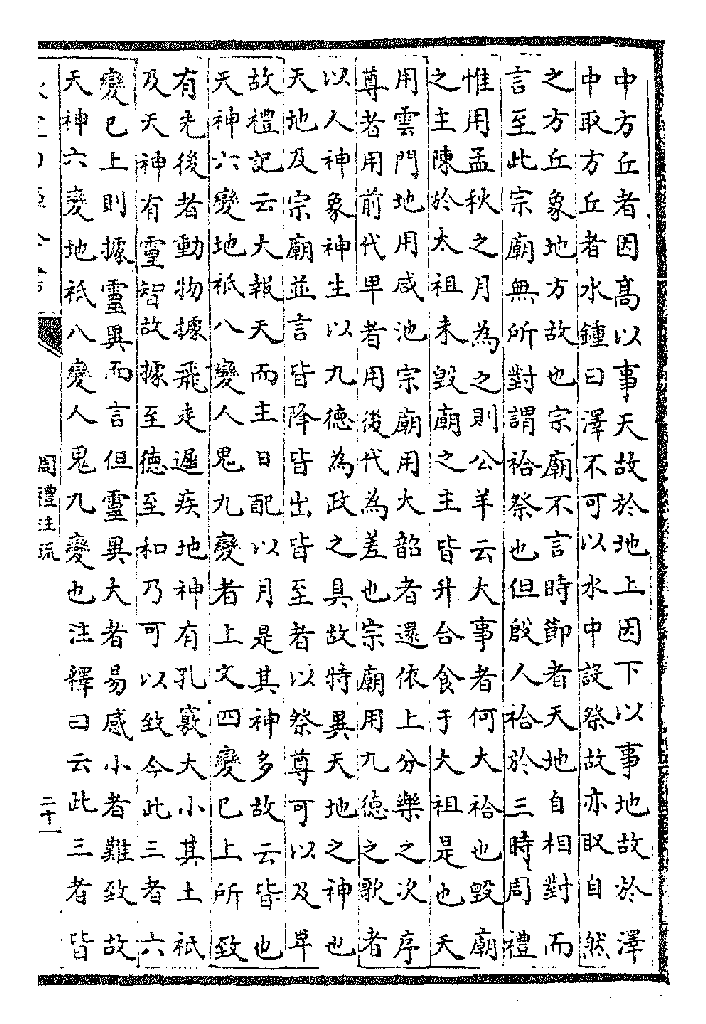 中方丘者因高以事天故於地上因下以事地故於澤
中取方丘者水鍾曰澤不可以水中設祭故亦取自然
之方丘象地方故也宗廟不言時節者天地自相對而
言至此宗廟無所對謂祫祭也但殷人祫於三時周禮
惟用孟秋之月為之則公羊云大事者何大祫也毀廟
之主陳於太祖未毀廟之主皆升合食于大祖是也天
用雲門地用咸池宗廟用大韶者還依上分樂之次序
尊者用前代卑者用後代為差也宗廟用九德之歌者
以人神象神生以九德為政之具故特異天地之神也
天地及宗廟並言皆降皆出皆至者以祭尊可以及卑
故禮記云大報天而主日配以月是其神多故云皆也
天神六變地祇八變人鬼九變者上文四變已上所致
有先後者動物據飛走遲疾地神有孔竅大小其土祇
及天神有靈智故據至德至和乃可以致今此三者六
變已上則據靈異而言但靈異大者易感小者難致故
天神六變地祇八變人鬼九變也注釋曰云此三者皆
周禮注疏
二十一